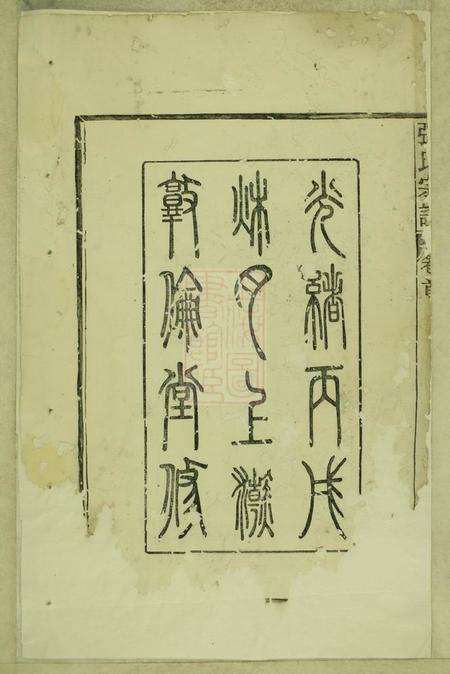 張氏宗譜 卷首
光緒丙戌
秌月上澣
敦倫堂修